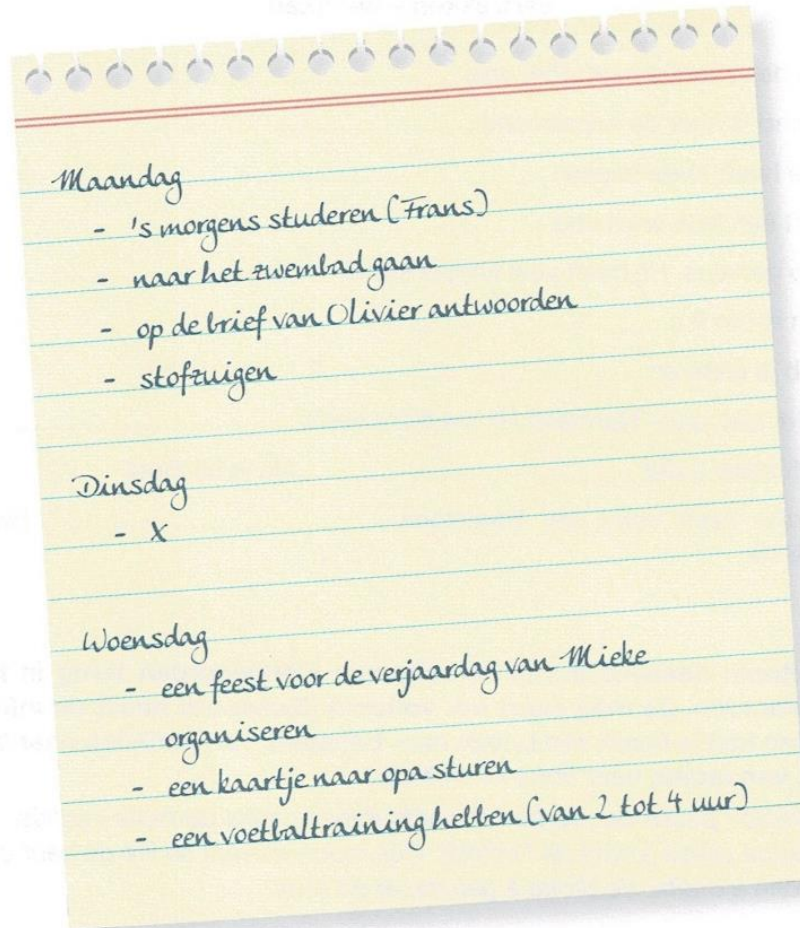 Maandag
- 's morgens studeren (Frans)
- naar het zwembad gaan
- op de brief van Olivier antwoorden
- stofzuigen
Dinsdag
- X
Woensdag
- een feest voor de verjaardag van Mieke
organiseren
- een kaartje naar opa sturen
- een voetbaltraining hebben (van 2 tot 4 uur)